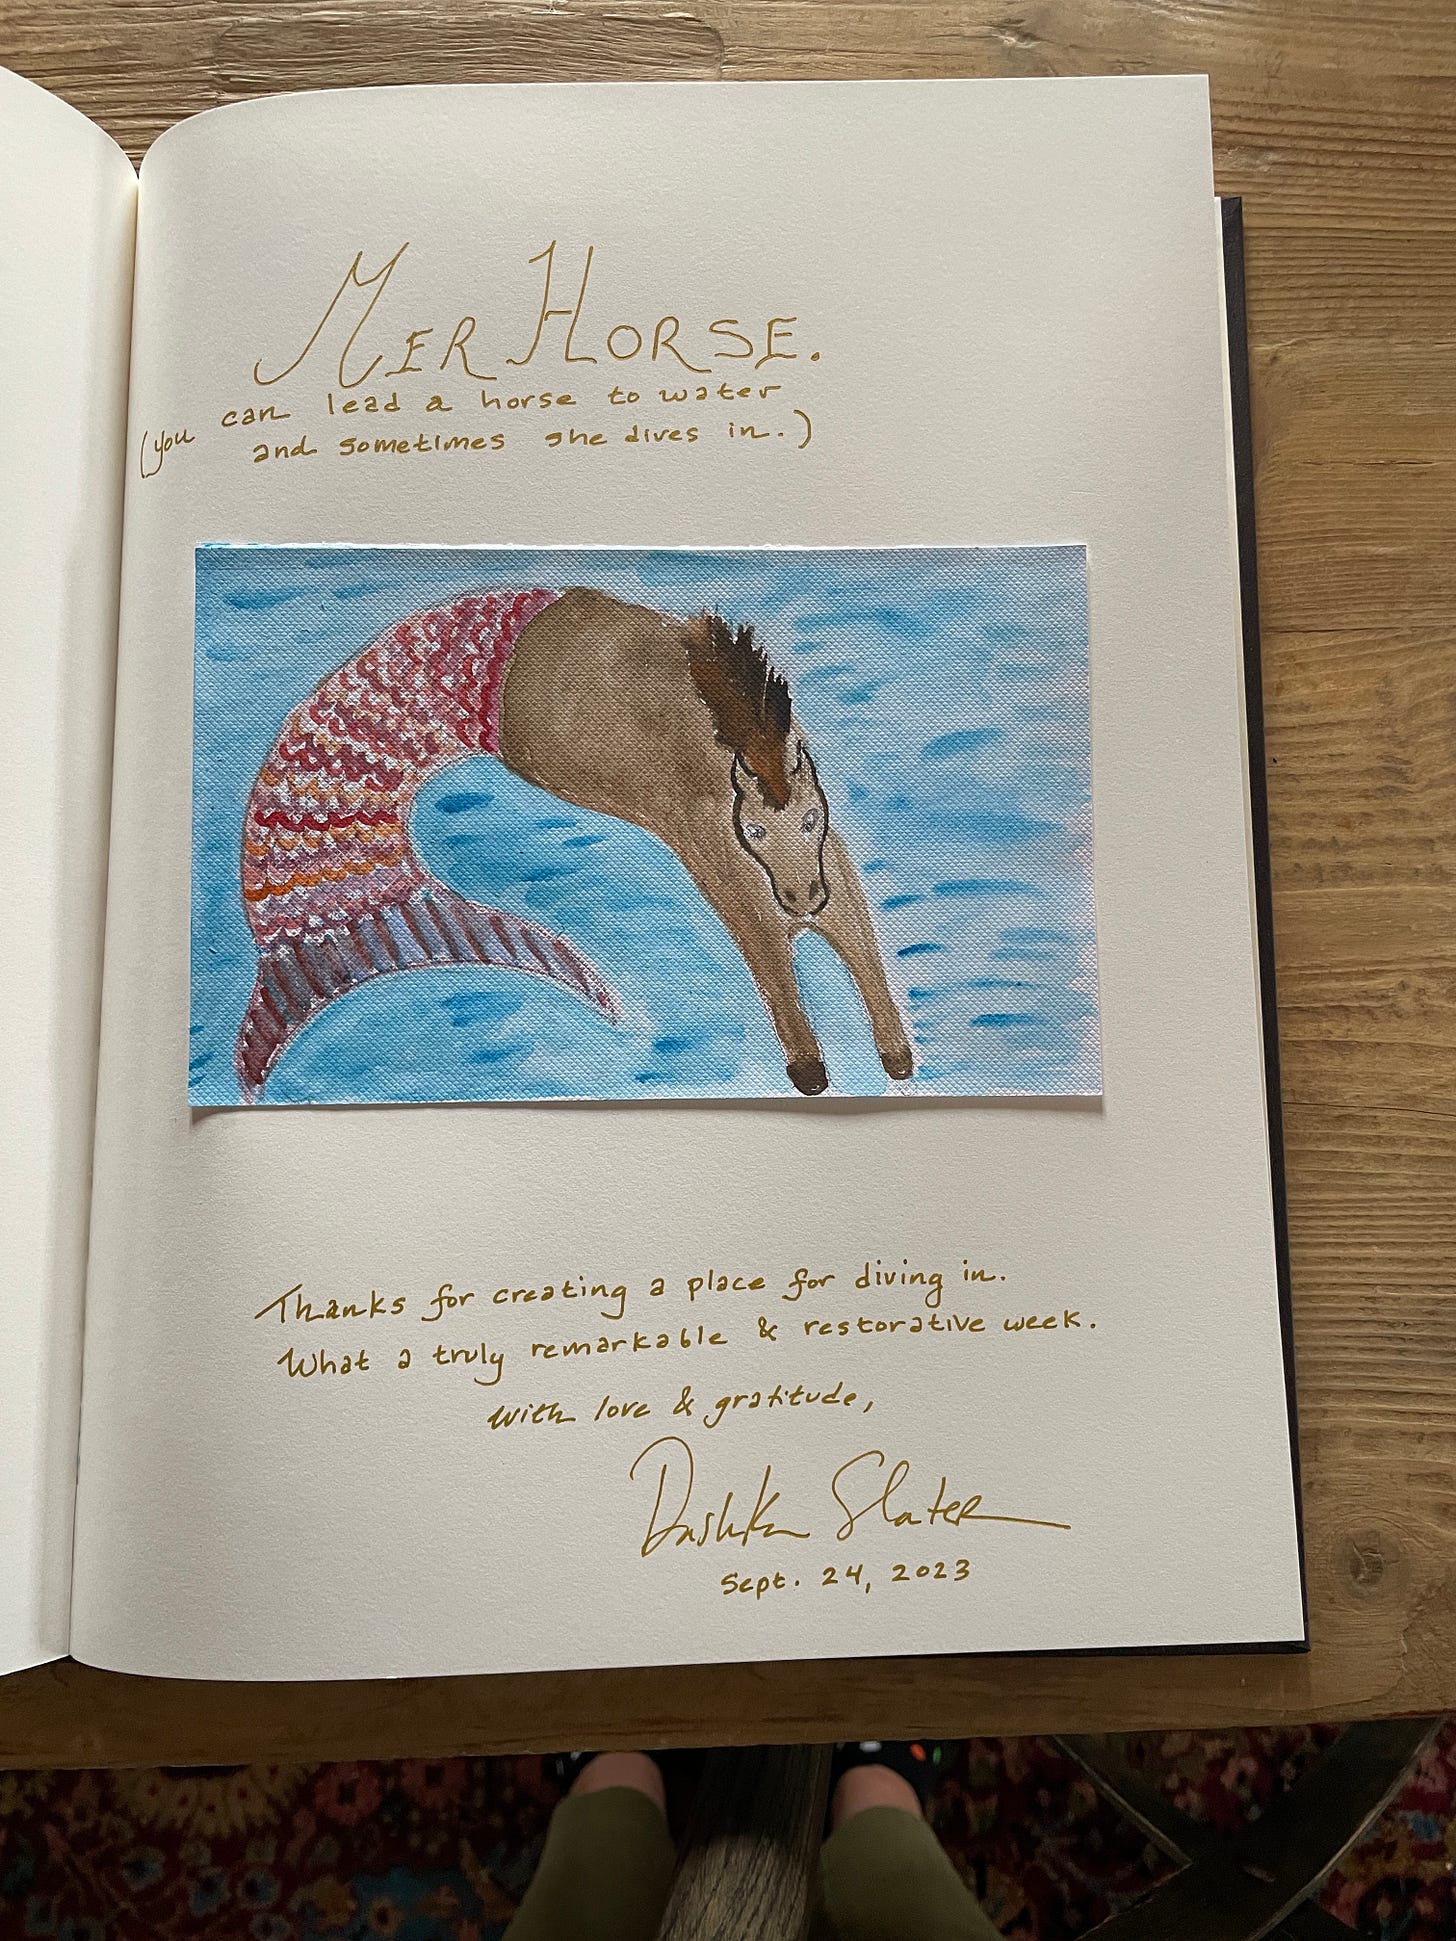 MER HORSE.
(you can lead a horse to water
and sometimes she dives in.)
Thanks for creating a place for diving in.
What a truly remarkable & restorative week.
With love & gratitude,
Dashka Slater
Sept. 24, 2023